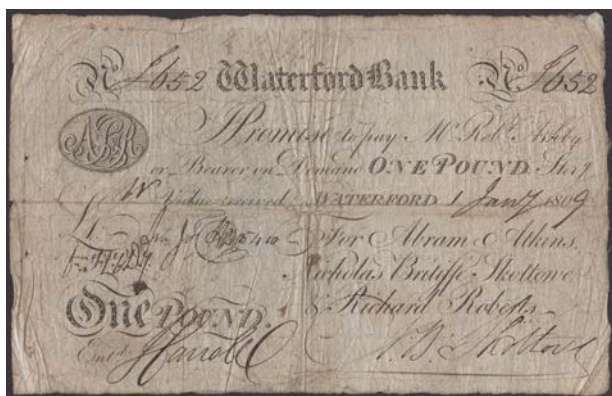 No 1652 Waterford Bank No 1652
I Promise to pay Mr. Robt. Ashby
or Bearer on Demand ONE POUND Sterg
Value received WATERFORD 1 Jany 1809
For Abram Atkins,
Nicholas Britiffe Skottowe
& Richard Roberts
One POUND.
Entd.
N. B. Skottowe